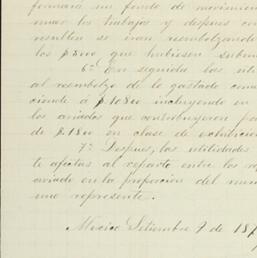 formará un fondo de movimien
los trabajos y despues con
resulten se iran reembolzando
los $3000 que hubiesen
6ª En seguida las uti
al reembolzo de lo gastado
ciende a $10800 incluyendo en
los aviados que contribuyeron pa
de $1800 en clase de exhibicion
7ª Despues, las utilidades
te afectas al reparto entre los
aviado en la proporcion del
que represente.
Mexico Setiembre 7 de 187